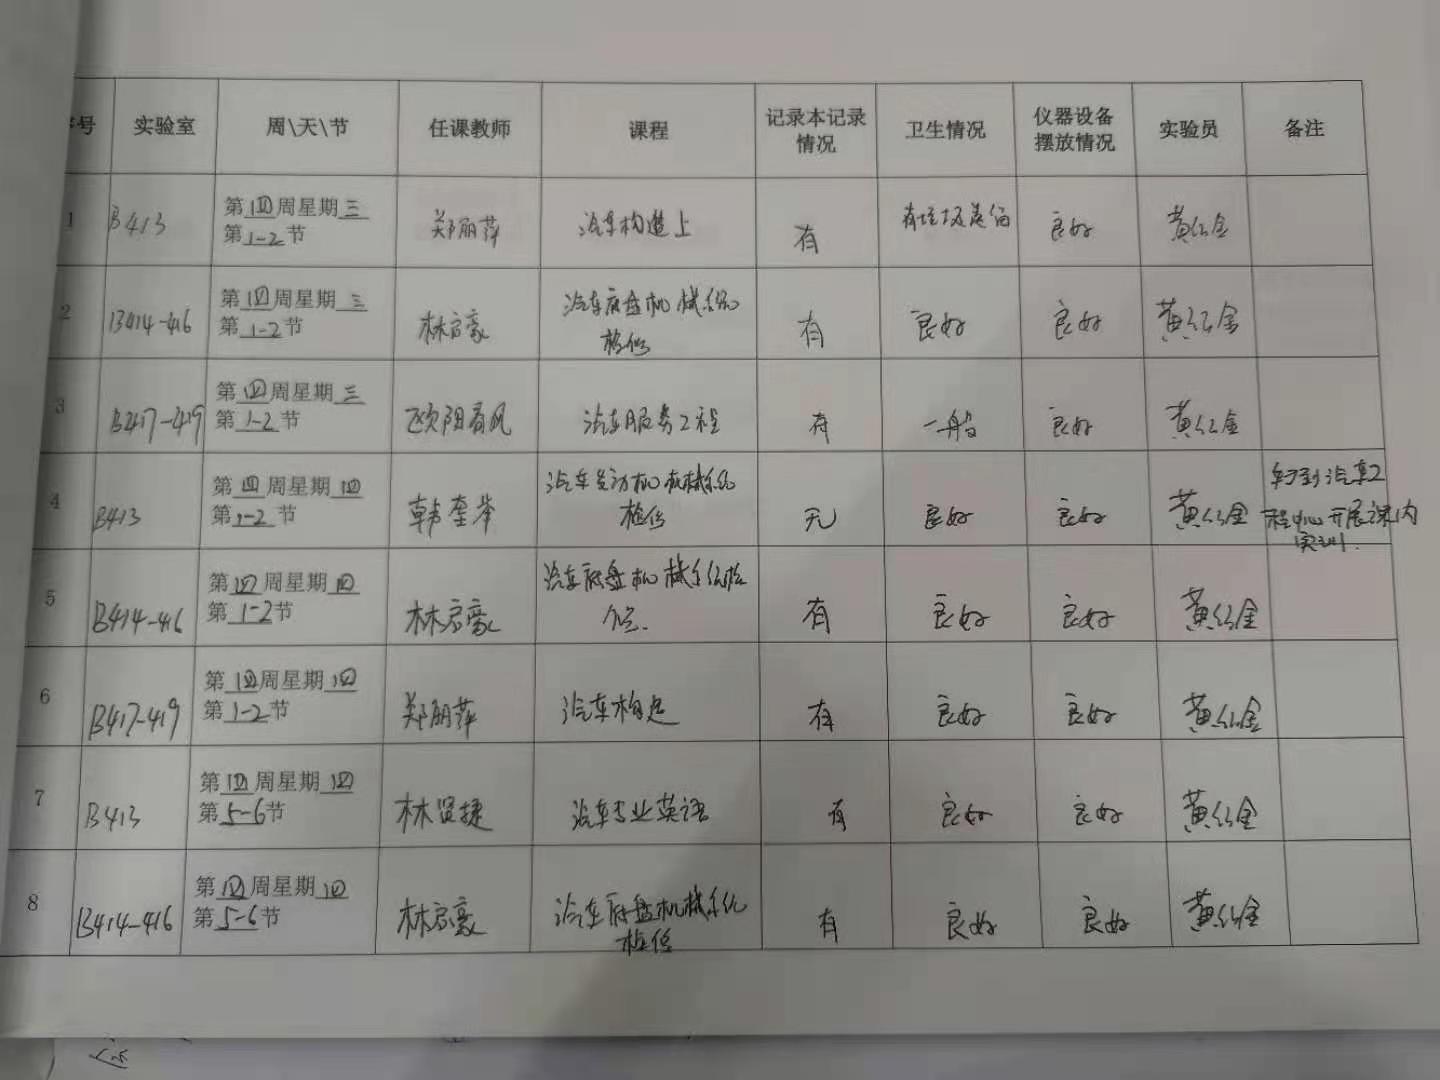 序号 实验室 周\天\节 任课教师 课程 记录本记录 卫生情况 仪器设备 实验员 备注
情况 摆放情况
1 B413 第四周星期三 郑丽萍 汽车构造上 有 有垃圾遗留 良好 黄红金
第1-2节
2 B414-416 第四周星期三 林启豪 汽车底盘机械系统 有 良好 良好 黄红金
第1-2节 检修
3 B417-419 第四周星期三 欧阳春风 汽车服务工程 有 一般 良好 黄红金
第1-2节
4 B413 第四周星期四 韩奎 汽车发动机机械系统 无 良好 良好 黄红金 转到汽车工
第1-2节 检修 程中心开展课内
实训.
5 B414-416 第四周星期四 林启豪 汽车底盘机械系统检 有 良好 良好 黄红金
第1-2节 修.
6 B417-419 第四周星期四 郑丽萍 汽车构造 有 良好 良好 黄红金
第1-2节
7 B413 第四周星期四 林贤捷 汽车专业英语 有 良好 良好 黄红金
第5-6节
8 B414-416 第四周星期四 林启豪 汽车底盘机械系统 有 良好 良好 黄红金
第5-6节 检修